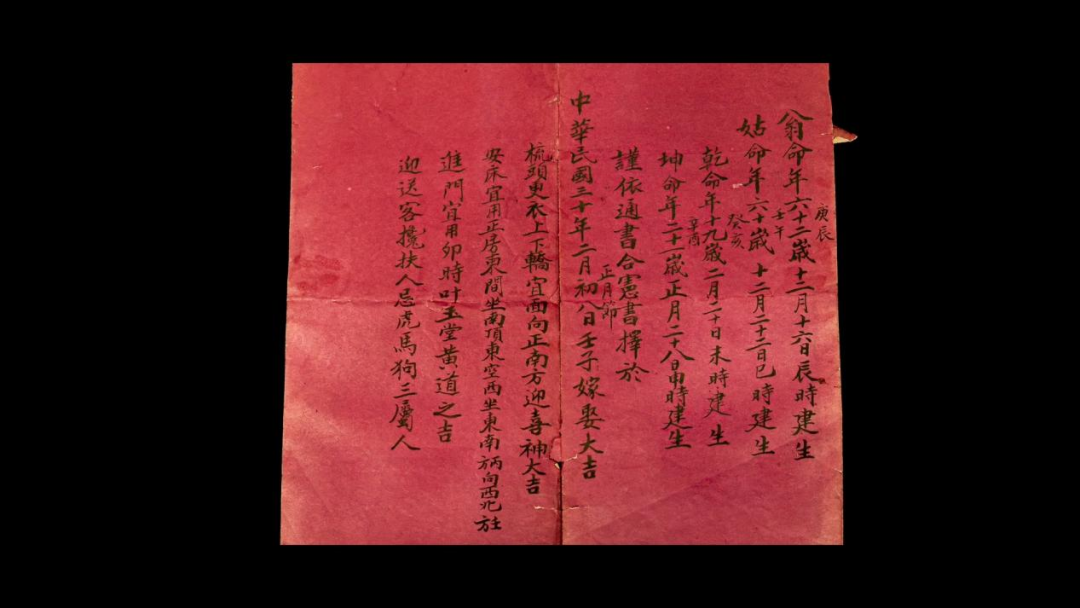 翁命年六十二歲十二月十六日辰時建生
庚辰
姑命年六十歲十二月二十二日巳時建生
壬午
乾命年十九歲二月二十日未時建生
癸亥
坤命年二十一歲正月二十八日申時建生
辛酉
謹依通書合憲書擇於
中華民國三十年二月初八日壬子嫁娶大吉
正月節
梳頭更衣上下轎宜面向正南方迎喜神大吉
安床宜用正房東間坐南頂東空西坐東南向西北方
進門宜用卯時叶玉堂黄道之吉
迎送客攙扶人忌虎馬狗三屬人